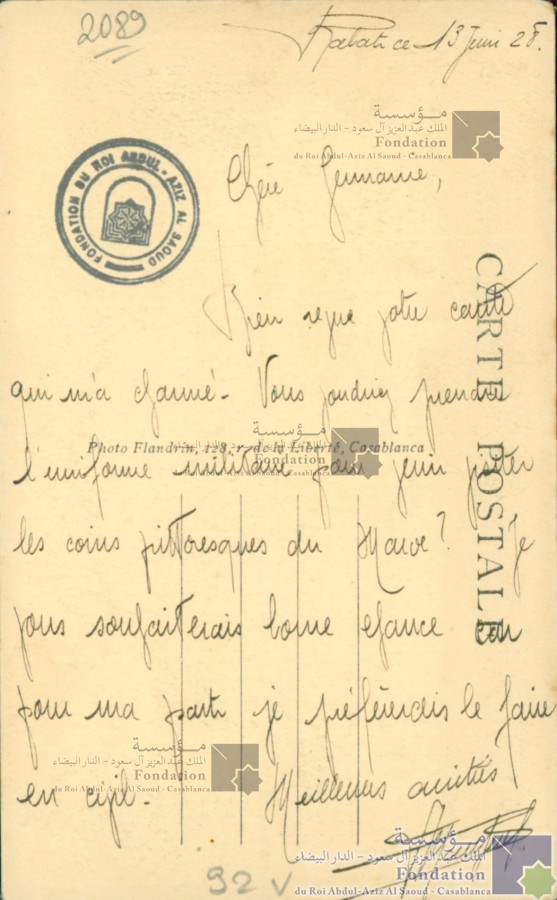 2089
Rabat ce 13 Juin 28.
مؤسسة
الملك عبد العزيز آل سعود - الدار البيضاء
Fondation
du Roi Abdul-Aziz Al Saoud - Casablanca
FONDATION DU ROI ABDUL-AZIZ AL SAOUD
Chère Germaine,
Bien reçue votre carte
qui m'a charmé - Vous voudriez prendre
Photo Flandrin, 128, r. de la Liberté, Casablanca
مؤسسة
l'uniforme militaire pour venir visiter
les coins pittoresques du Maroc? Je
vous souhaiterais bonne chance car
pour ma part je préférerais le faire
en civil - Meilleures amitiés
CARTE POSTALE
مؤسسة
الملك عبد العزيز آل سعود - الدار البيضاء
Fondation
du Roi Abdul-Aziz Al Saoud - Casablanca
مؤسسة
الملك عبد العزيز آل سعود - الدار البيضاء
Fondation
du Roi Abdul-Aziz Al Saoud - Casablanca
92 v